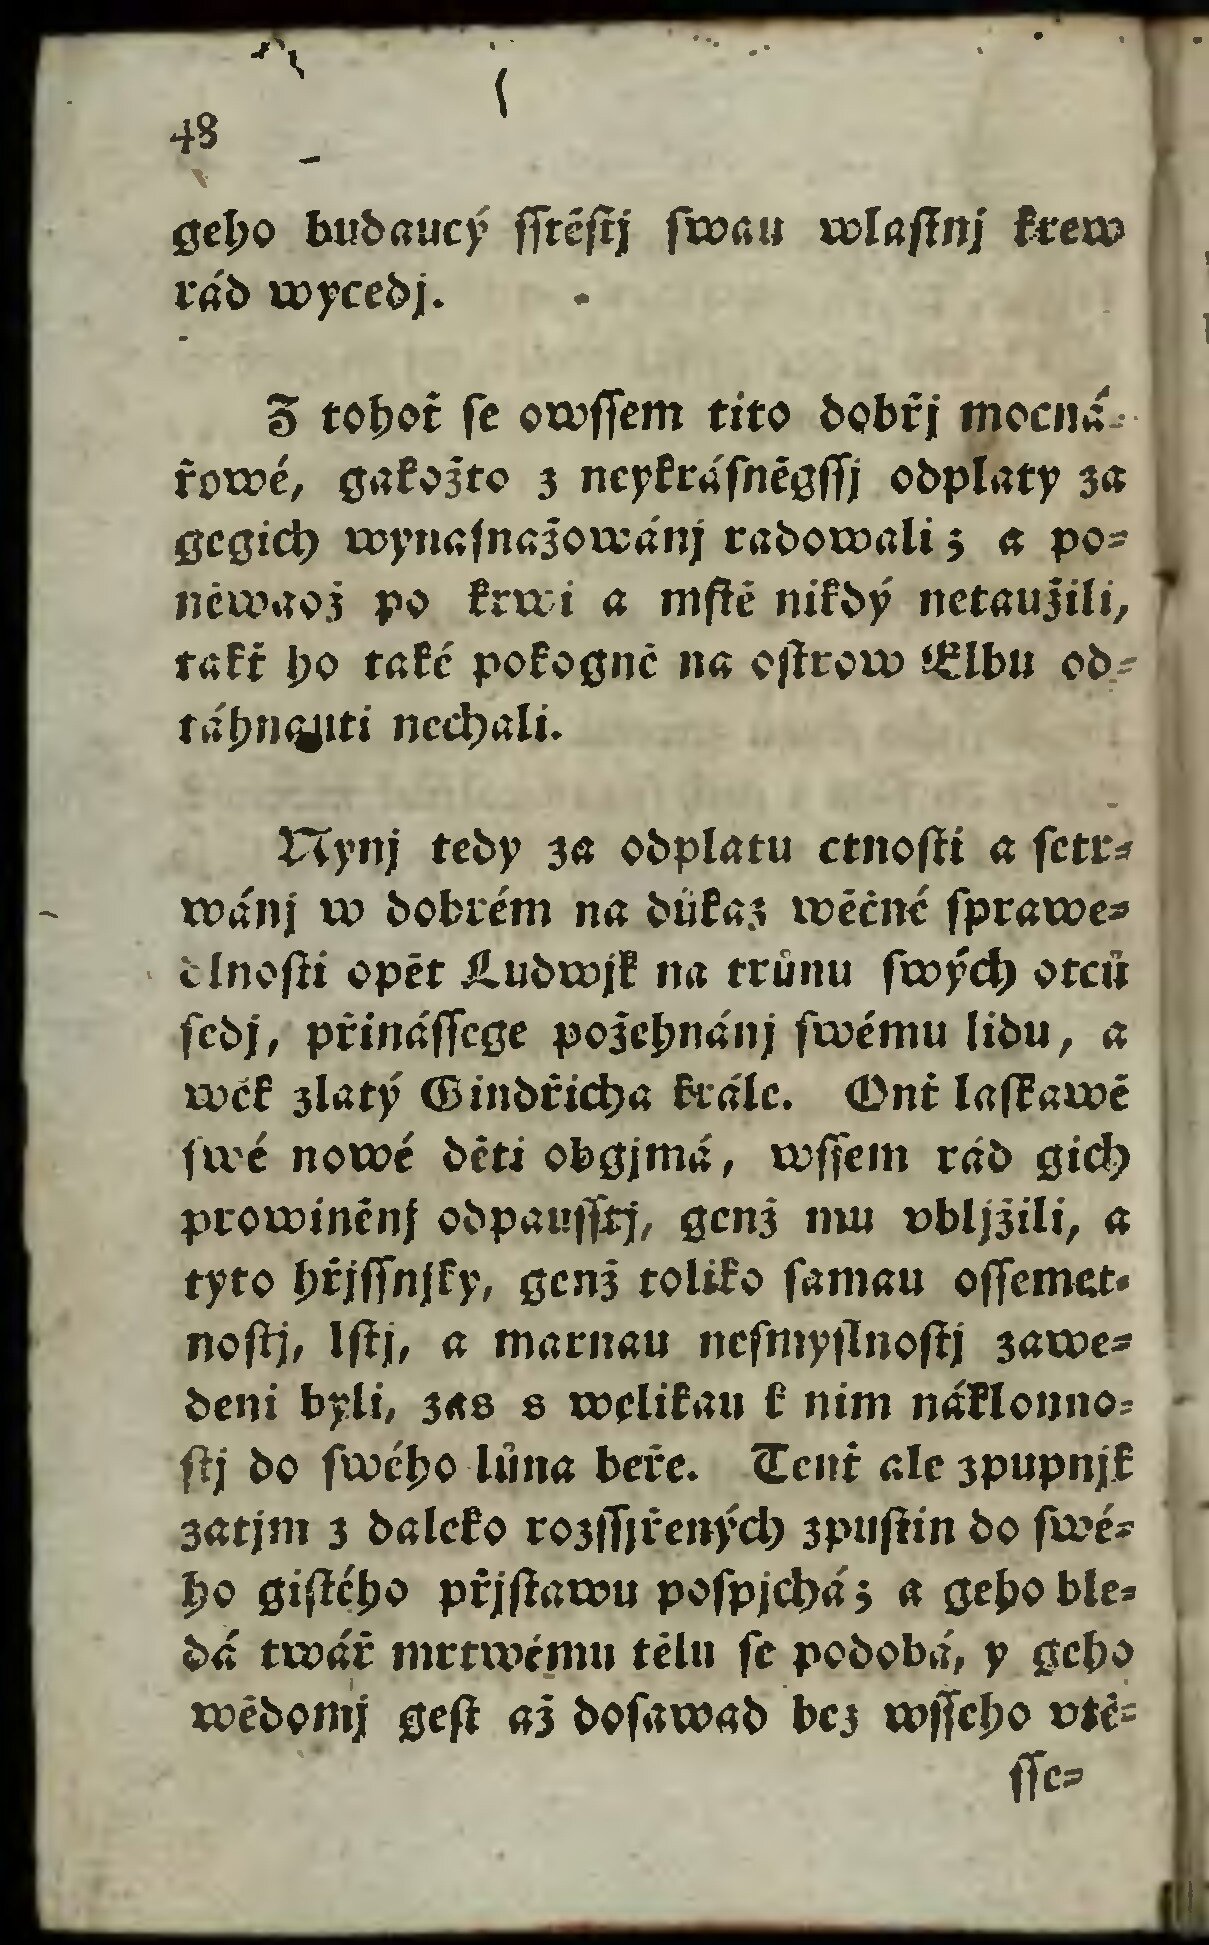 48
geho budaucý sstěstj swau wlastnj krew
rád wycedj.
Z tohoť se owssem tito dobřj mocná-
řowé, gakožto z neykrásněgssj odplaty za
gegich wynasnažowánj radowali; a po-
něwaož po krwi a mstě nikdý netaužili,
takť ho také pokogně na ostrow Elbu od-
táhnauti nechali.
Nynj tedy za odplatu ctnosti a setr-
wánj w dobrém na důkaz wěčné sprawe-
dlnosti opět Ludwjk na trůnu swých otců
sedj, přinássege požehnánj swému lidu, a
wěk zlatý Gindřicha krále. Onť laskawě
swé nowé děti obgjmá, wssem rád gich
prowiněnj odpausstj, genž mu vbljžili, a
tyto hřjssnjky, genž toliko samau ossemet-
nostj, lstj, a marnau nesmyslnostj zawe-
deni byli, zas s welikau k nim náklonno-
stj do swého lůna beře. Tenť ale zpupnjk
zatjm z daleko rozssjřených zpustin do swé-
ho gistého přjstawu pospjchá; a geho ble-
dá twář mrtwému tělu se podobá, y geho
wědomj gest až dosawad bez wsseho vtě-
sse-